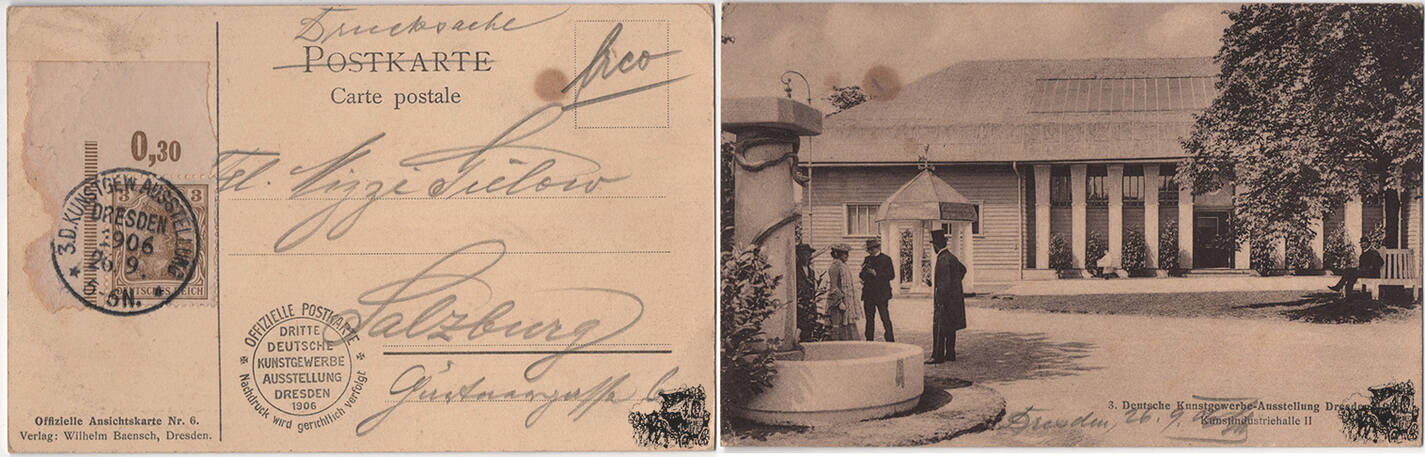 Drucksache
POSTKARTE
Carte postale
frco
0,30
3 3
DEUTSCHES REICH
3.D.KUNSTGEW.AUSSTELLUNG
DRESDEN
1906
26.9.
5-6N.
Frl. Mizzi Tielow
Salzburg
OFFIZIELLE POSTKARTE
DRITTE
DEUTSCHE
KUNSTGEWERBE
AUSSTELLUNG
DRESDEN
1906
Nachdruck wird gerichtlich verfolgt
Offizielle Ansichtskarte Nr. 6.
Verlag: Wilhelm Baensch, Dresden.
3. Deutsche Kunstgewerbe-Ausstellung Dresden
Kunstindustriehalle II
Dresden, 26.9.